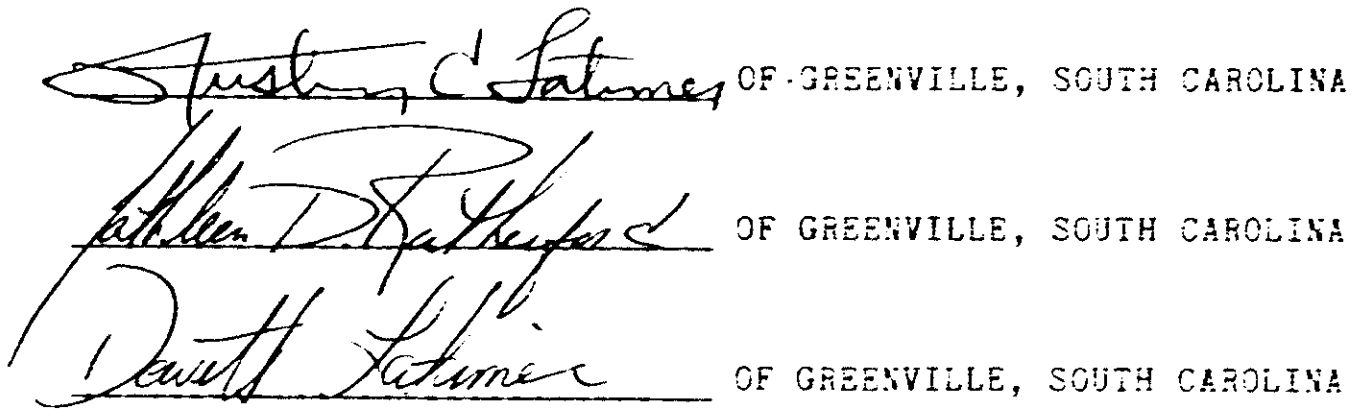 Austin C Latimer OF GREENVILLE, SOUTH CAROLINA
Kathleen D. Rutherford OF GREENVILLE, SOUTH CAROLINA
Latimer OF GREENVILLE, SOUTH CAROLINA